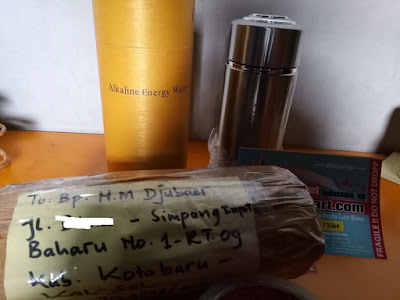 Alkaline Energy Water
To: Bp. H.M Djubaer
Jl. – Simpang Empat
Baharu No. 1 - RT. 09
Kab. Kotabaru –
Kal-Sel
FRAGILE!! DO NOT DROP